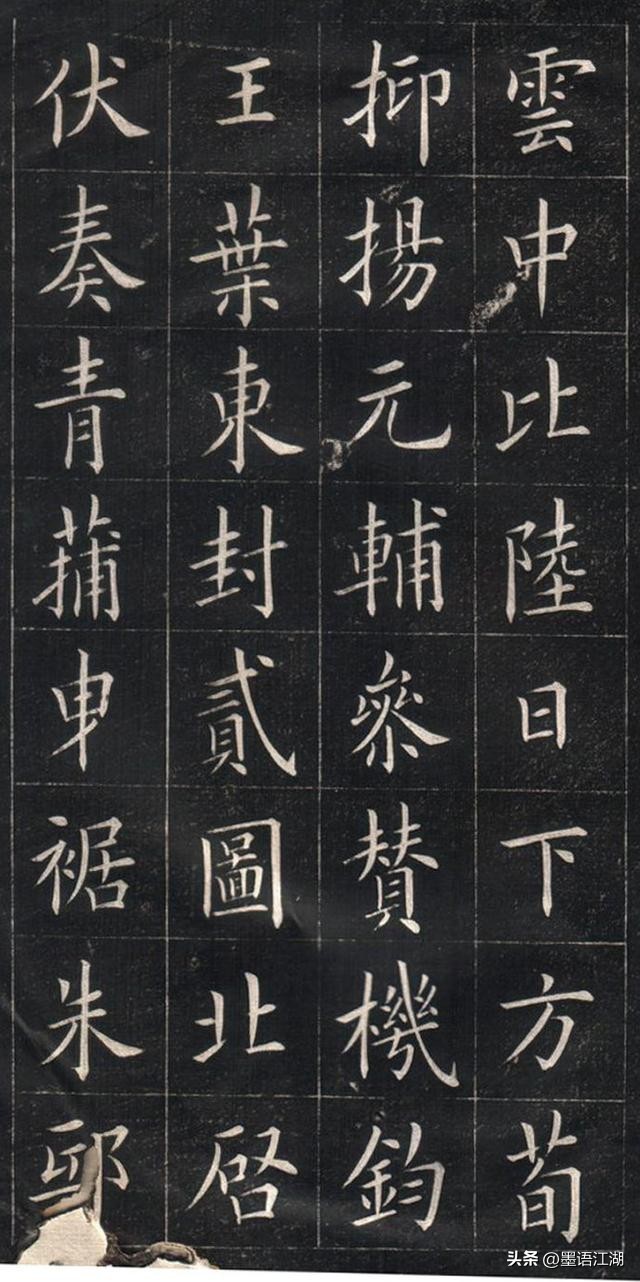 雲中比陸日下方荀
抑揚元輔參賛機鈞
王葉東封貳圖北啓
伏奏青蒲曳裾朱邸
头条 @墨语江湖